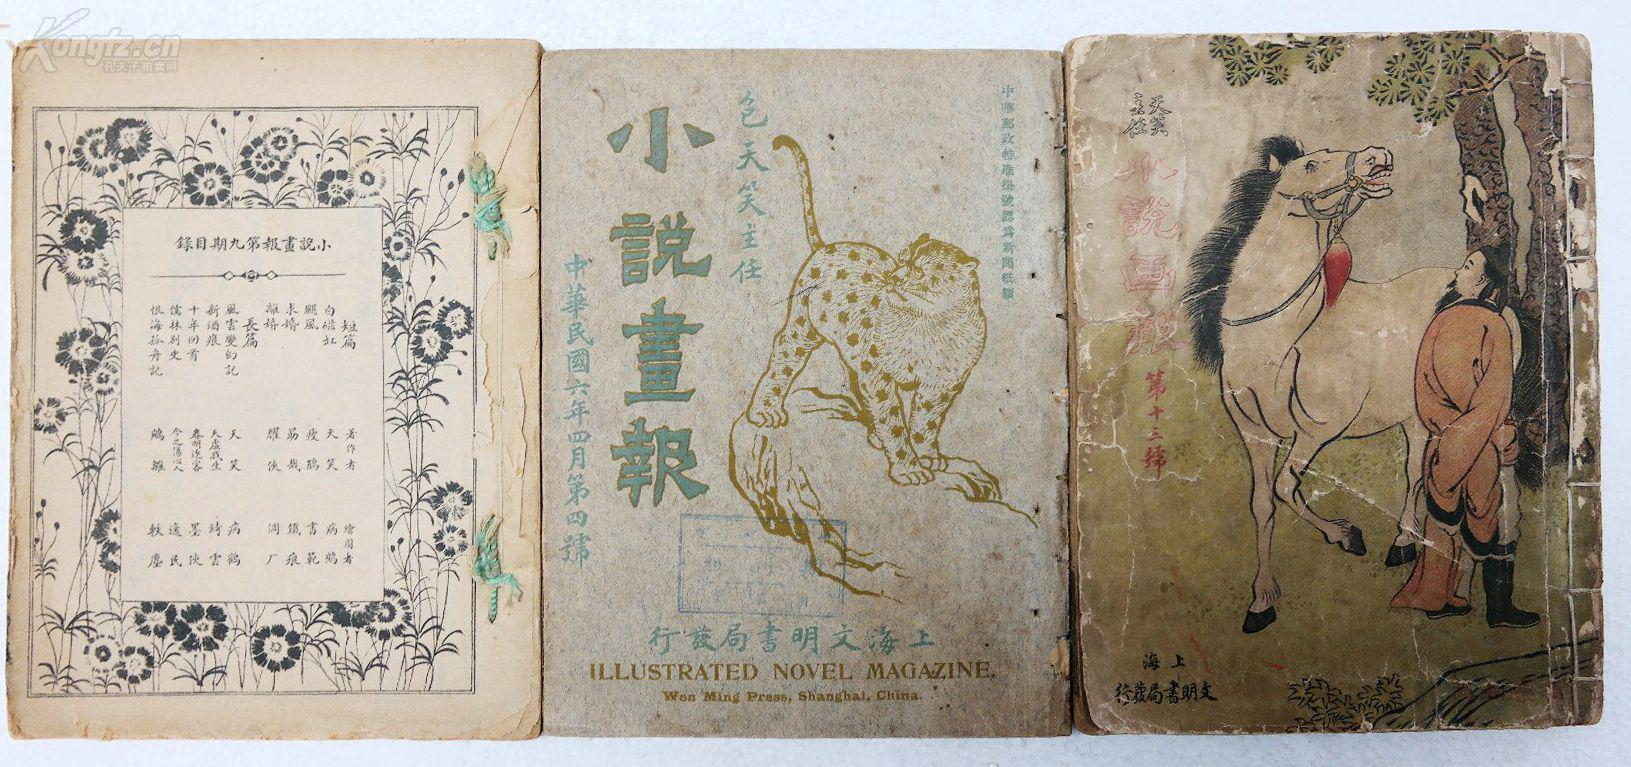 Kongfz.cn
孔夫子拍卖网
小說畫報第九期目錄
短篇
著作者
繪圖者
白礁缸
天笑
病鶴
颶風
瘦鵑
書範
求婚
鐵痕
離婚
耀俠
長篇
風雲變幻記
天笑
病鶴
新酒痕
天虛我生
綺雲
十年回首
春明逐客
墨俠
儒林別史
今之傷心人
逸民
恨海孤舟記
鵷雛
軼塵
中華郵政特准掛號認爲新聞紙類
包天笑主任
小說畫報
中華民國六年四月第四號
上海文明書局發行
ILLUSTRATED NOVEL MAGAZINE.
Wen Ming Press, Shanghai, China.
天笑
主任
小說画報
第十三號
上海
文明書局發行